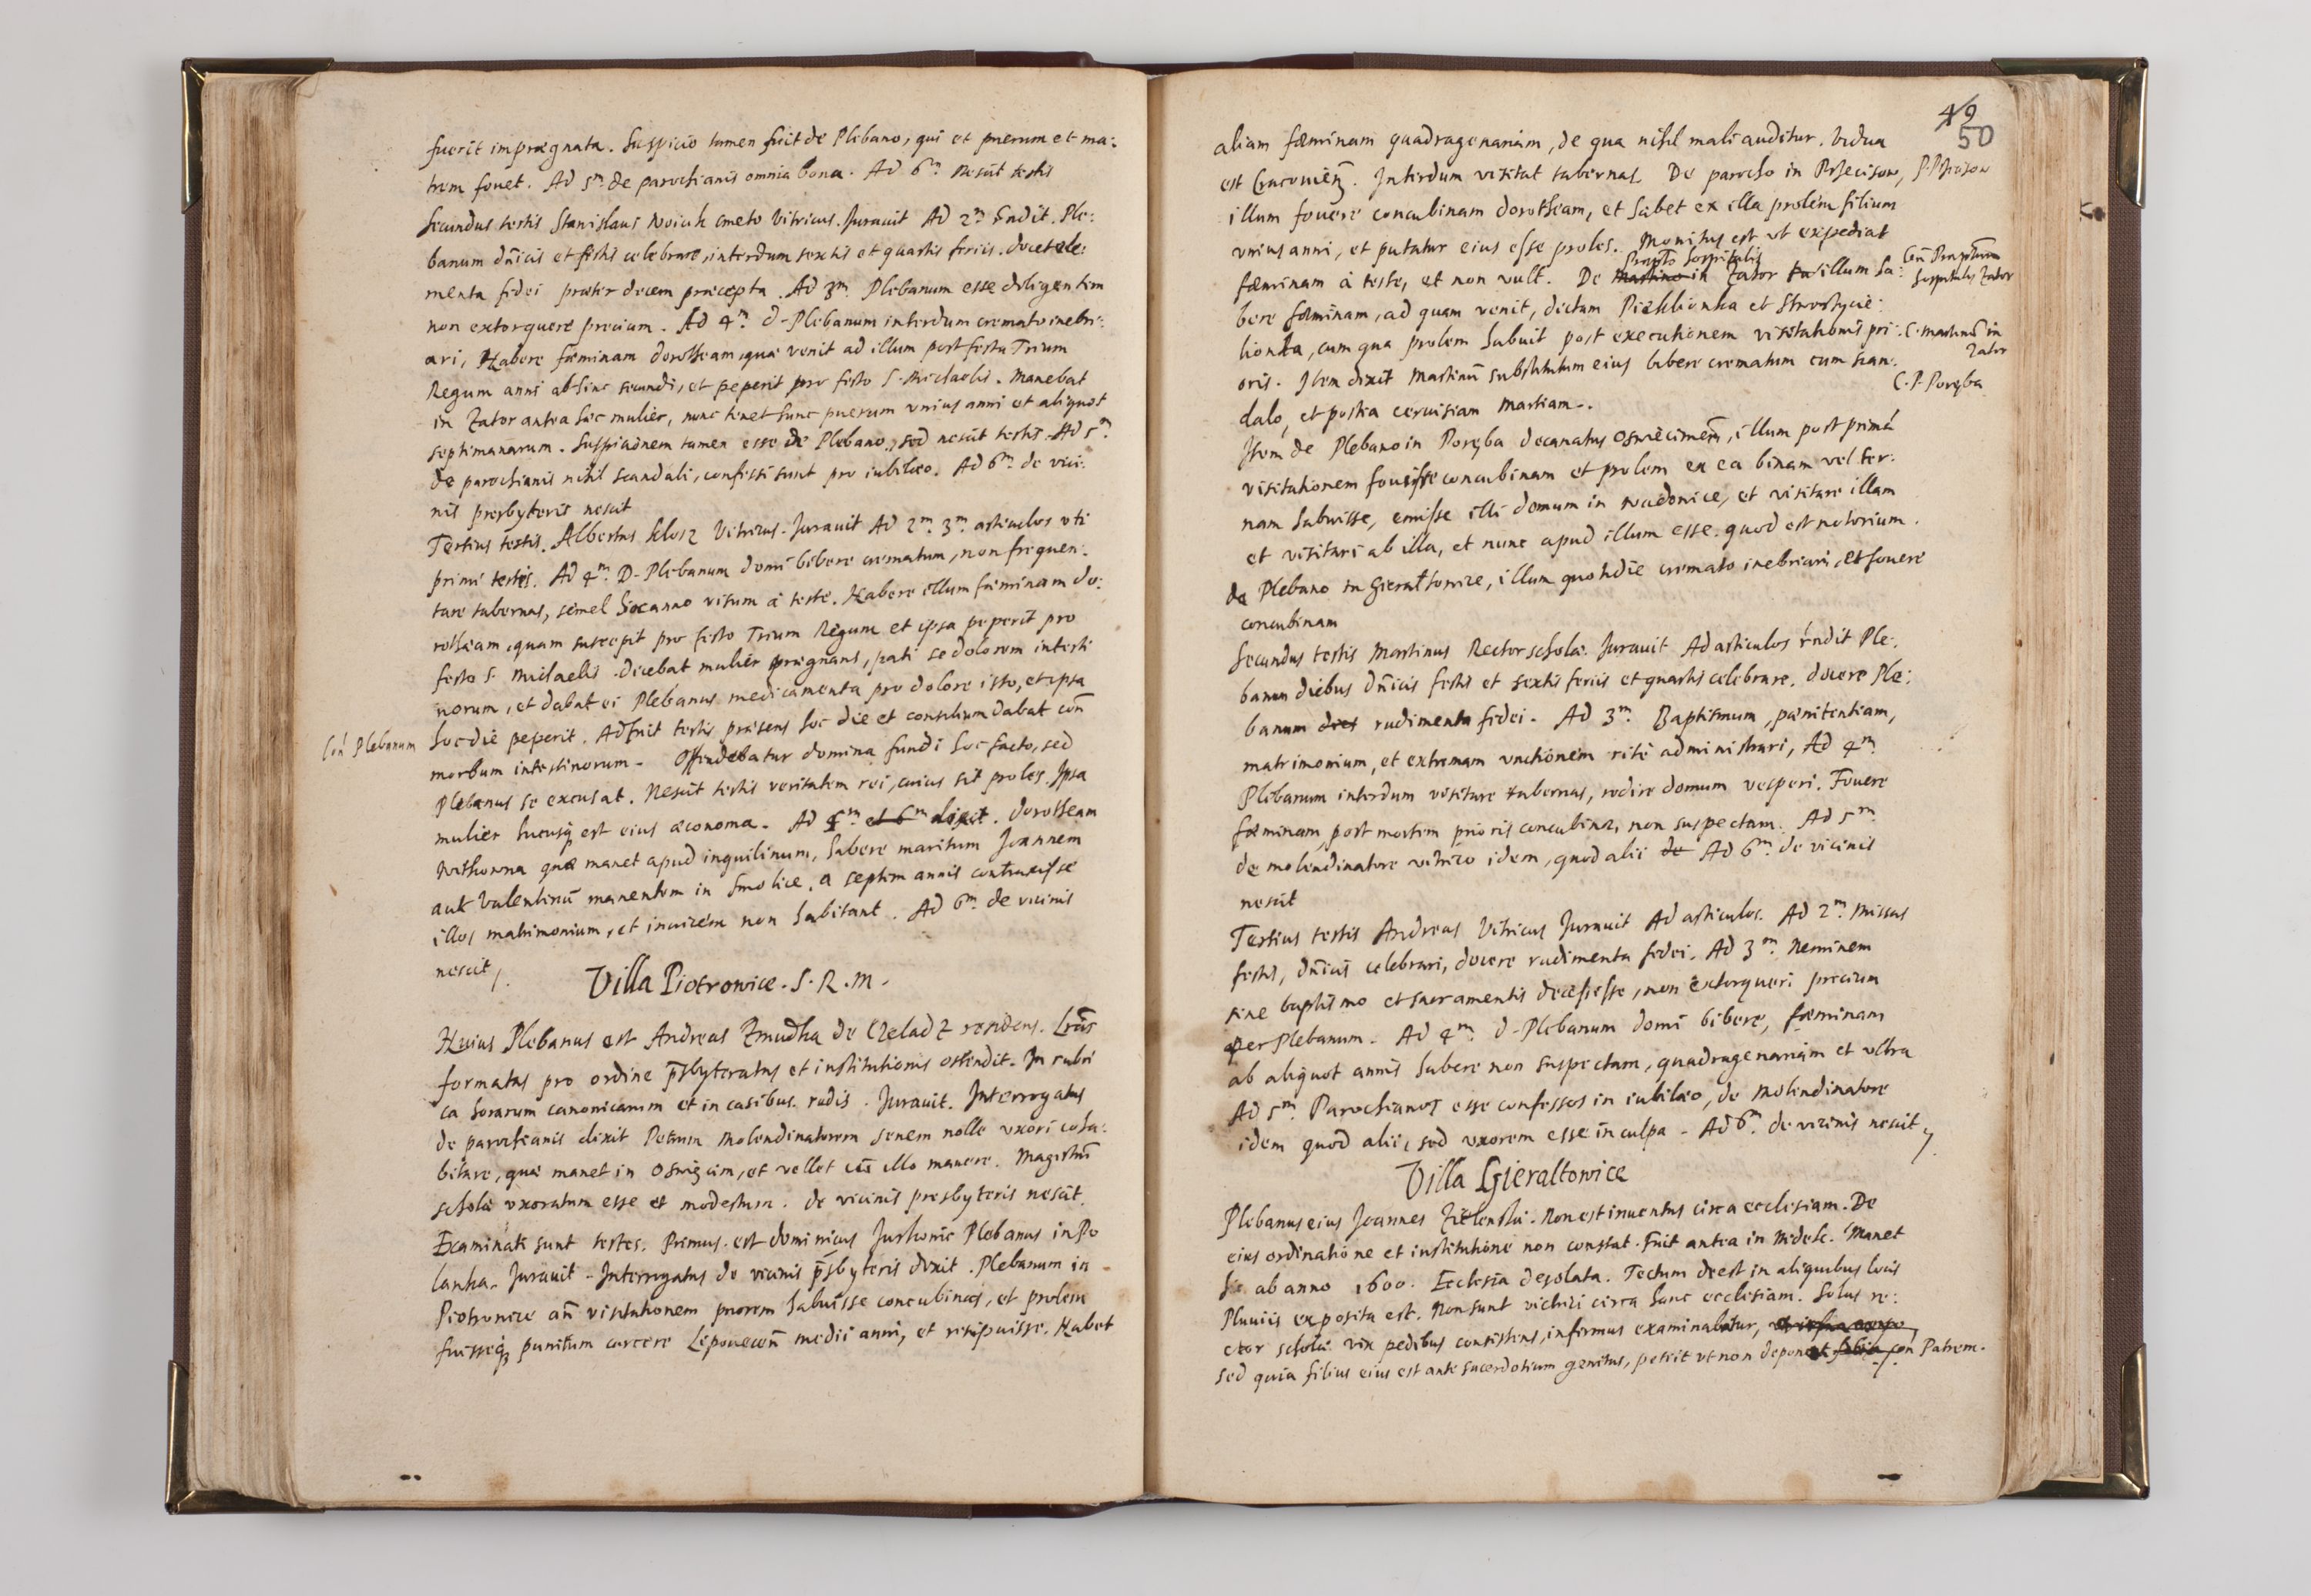 fuerit impraegnata. Suspicio tamen fuit de Plebano, qui et puerum et ma:
trem fouet. Ad 5m. de parochianis omnia bona. Ad 6m. nescit testis
Secundus testis Stanislaus Noiak cmeto Vitricus. Jurauit Ad 2m rndit. Ple:
banum dnicis et festis celebrare, interdum sextis et quartis feriis. docet ele:
menta fidei praeter decem praecepta. Ad 3m. Plebanum esse diligentem
non extorquere precium. Ad 4m. d. Plebanum interdum cremato inebri:
ari, Habere faeminam dorotheam, quae venit ad illum post festa Trium
Regum anni abhinc secundi, et peperit pro festo S. Michaelis. Manebat
in Zator antea haec mulier, nunc tenet hunc puerum vnius anni et aliquot
septimanarum. Suspicionem tamen esse de Plebano, sed nescit testis. Ad 5m.
de parochianis nihil scandali, confessi sunt pro iubilaeo. Ad 6m. de vici:
nis presbyteris nescit
Tertius testis. Albertus klosz Vitricus. Jurauit Ad 2m. 3m. articulos vti
primi testis. Ad 4m. D. Plebanum domi bibere crematum, non frequen:
tare tabernas, semel hoc anno visum à teste. Habere illum faeminam do:
rotheam, quam suscepit pro festo Trium Regum et ipsa peperit pro
festo S. Michaelis. dicebat mulier praegnans, pati se dolorem intesti
norum, et dabat ei Plebanus medicamenta pro dolore isto, et ipsa
Con Plebanum
hoc die peperit. Adfuit testis praesens hoc die et consilium dabat con
morbum intestinorum. Offendebatur domina fundi hoc facto, sed
Plebanus se excusat. Nescit testis veritatem rei, cuius sit proles. Ipsa
mulier hucusq est eius oeconoma. Ad 5m. et 6m dixit. dorotheam
quae manet apud inquilinum, habere maritum Joannem
aut Valentinū manentem in Smolice. a septem annis contraxisse
illos matrimonium, et inuicem non habitant. Ad 6m. de vicinis
nescit
Villa Piotrowice. S. R. M.
Huius Plebanus est Andreas Zmudka de Czeladz residens. Lrās
formatas pro ordine psbyteratus et institutionis ostendit. In rubri
ca horarum canonicarum et in casibus rudis. Jurauit. Interrogatus
de parochianis dixit Petrum Molendinatorem senem nolle vxori coha:
bitare, quae manet in Oswięcim, et vellet cū illo manere. Magistrū
scholae vxoratum esse et modestum. de vicinis presbyteris nescit.
Examinati sunt testes. Primus est dominicus Jurkowic Plebanus in Po
lanka. Jurauit. Interrogatus de vicinis psbyteris dixit. Plebanum in
Piotrowice an visitationem priorem habuisse concubinas, et prolem
fuisseq punitum carcere medii anni, et resipuisse. Habet
49
50
aliam faeminam quadragenariam, de qua nihil mali auditur. Vidua
est Cracouien. Interdum visitat tabernas. De parocho in Przeciszow,
illum fouere concubinam dorotheam, et habet ex illa prolem filium
vnius anni, et putatur eius esse proles. Monitus est vt expediat
Praepto hospitalis
faeminam à teste, et non vult. De Martino in Zator illum ha:
Con Praeptum
hospitalis Zator
bere faeminam, ad quam venit, dictam Pieklionka et
lionka, cum qua prolem habuit post executionem visitationis pri:
C. Martinū in
Zator
oris. Item dixit Martinū substitutum eius bibere crematum cum scan:
C. P. Poręba
dalo, et postea ceruisiam Martiam.
Item de Plebano in Poręba decanatus Oswiecimen, illum post primā
visitationem fouisse concubinam et prolem ex ea binam vel ter:
nam habuisse, emisse illi domum in Wadowice, et visitare illam
et visitari ab illa, et nunc apud illum esse. quod est notorium.
de Plebano in Gieraltowice, illum quotidie cremato inebriari, et fouere
concubinam
Secundus testis Martinus Rector scholae. Jurauit Ad articulos rndit Ple:
banum diebus dnicis festis et sextis feriis et quartis celebrare. docere Ple:
banum dies rudimenta fidei. Ad 3m. Baptismum, paenitentiam,
matrimonium, et extremam vnctionem ritè administrari, Ad 4m.
Plebanum interdum visitare tabernas, redire domum vesperi. Fouere
faeminam post mortem prioris concubinae, non suspectam. Ad 5m.
de molendinatore vitrico idem, quod alii de Ad 6m. de vicinis
nescit
Tertius testis Andreas Vitricus Jurauit Ad articulos. Ad 2m. Missas
festis, dnicis celebrari, docere rudimenta fidei. Ad 3m. Neminem
sine baptismo et sacramentis decessisse, non extorqueri precium
per Plebanum. Ad 4m. d. Plebanum domi bibere, faeminam
ab aliquot annis habere non suspectam, quadragenariam et vltra
Ad 5m. Parochianos esse confessos in iubilaeo, de Molendinatore
idem quod alii, sed vxorem esse in culpa. Ad 6m. de vicinis nescit
Villa Gieraltowice
Plebanus eius Joannes Zielenski. Non est inuentus circa ecclesiam. De
eius ordinatione et institutione non constat. Fuit antea in Nidek. Manet
hic ab anno 1600. Ecclesia desolata. Tectum deest in aliquibus locis
Pluuiis exposita est. Non sunt victrici circa hanc ecclesiam. Solus re:
ctor scholae vix pedibus consistens, infirmus examinabatur,
sed quia filius eius est ante sacerdotium genitus, petiit vt non deponat con Patrem.